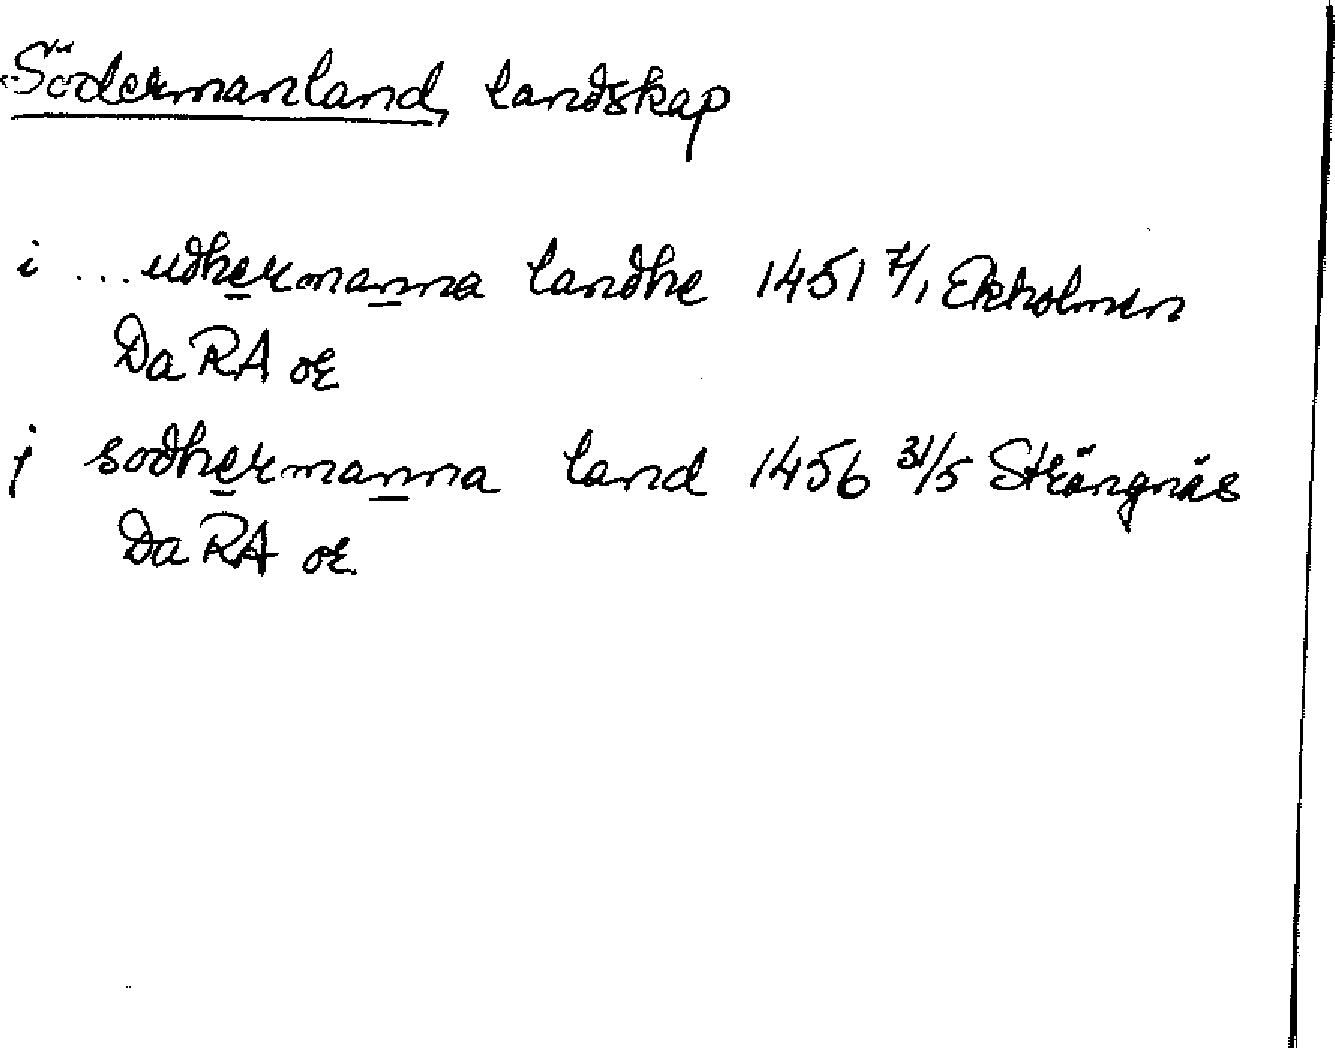 Södermanland, landskap
i ...udhermanna landhe 1451 7/1 Ekholmen
Da RA or
j sodhermanna land 1456 31/5 Strängnäs
Da RA or.